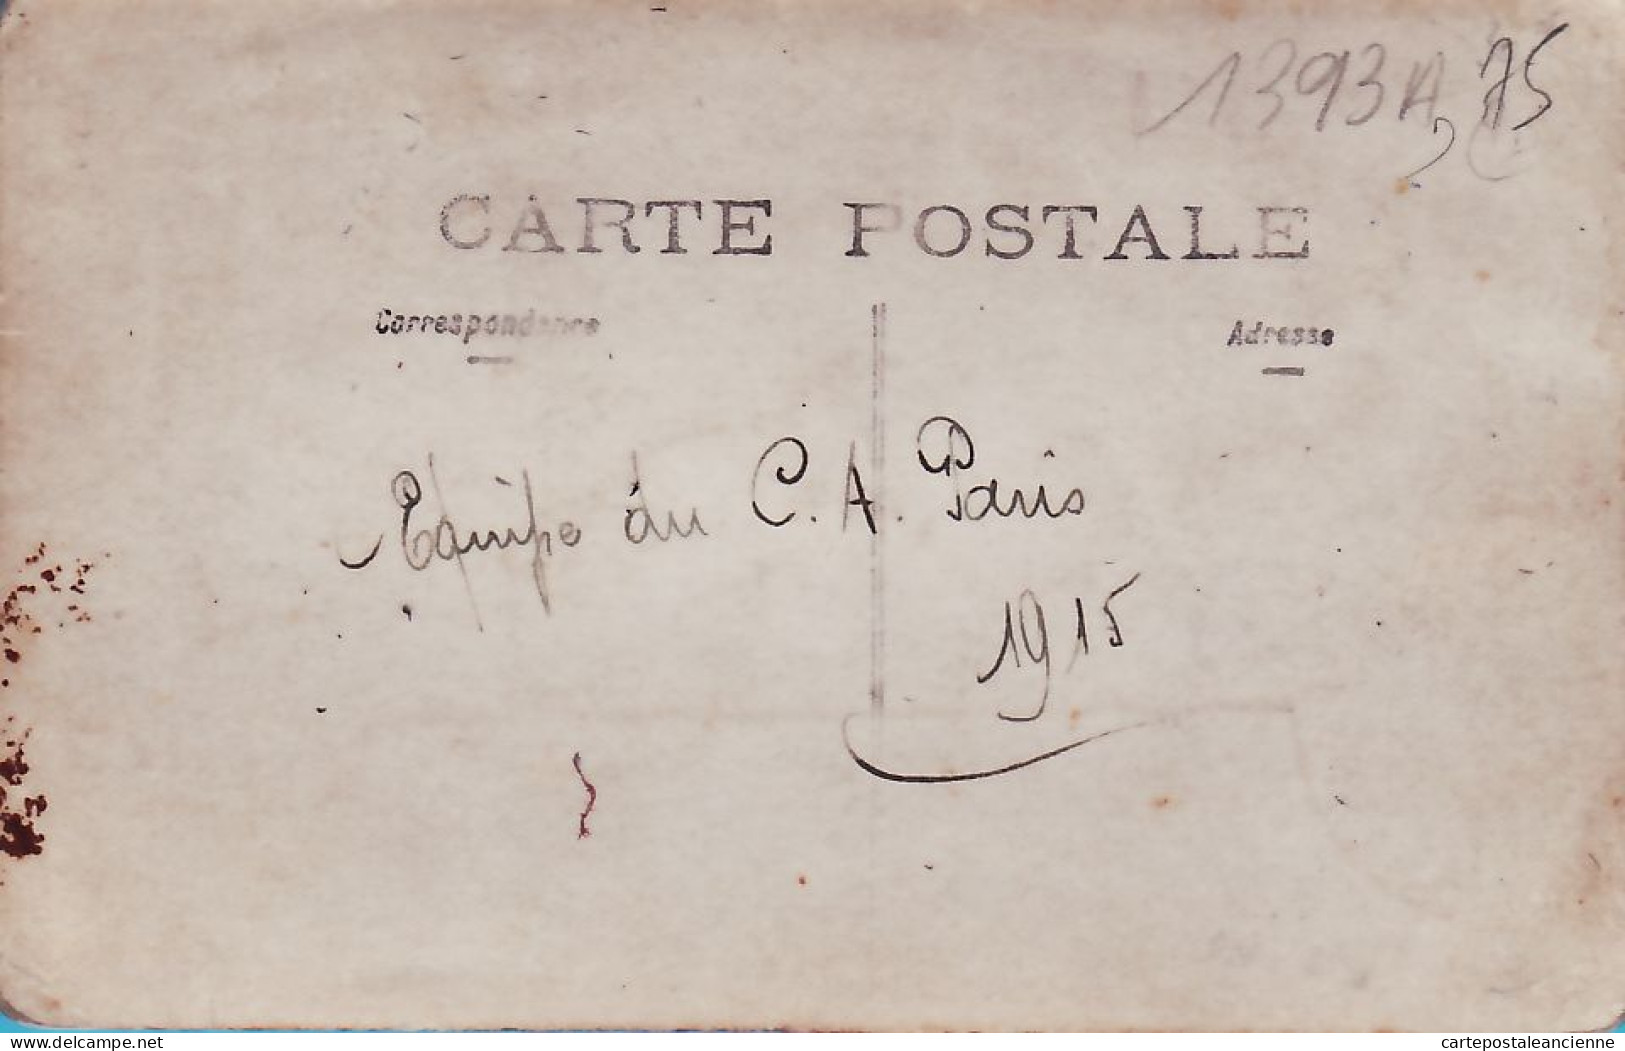 1393A, 75
CARTE POSTALE
Correspondance
Adresse
Equipe du C. A. Paris
1915
www.delcampe.net
cartepostaleancienne